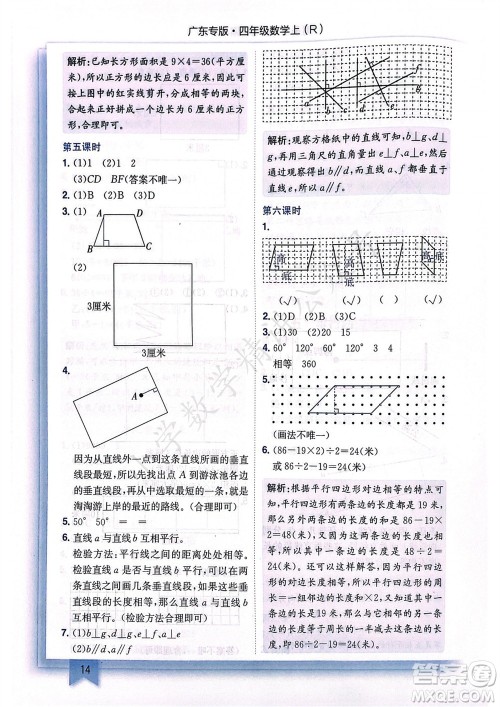 广东专版·四年级数学上(R)
解析:已知长方形面积是9×4=36(平方厘
米),所以正方形的边长应是6厘米,因此可
按上图中的红实线剪开,分成相等的两块,
合起来正好拼成一个边长为6厘米的正方
形,合理即可。
第五课时
1. (1)1 (2)1 2
(3)CD BF(答案不唯一)
3. (1)
A
D
B
C
(2)
3厘米
3厘米
4.
A
因为从直线外一点到这条直线所画的垂直
线段最短,所以先找出点A到游泳池各边的
垂直线段,垂直线段最短的那条线段就是
淘淘游上岸的最近的路线。(合理即可)
5. 50° 50° =
6. 直线a与直线b互相平行。
检验方法:平行线之间的距离处处相等。
检验直线a与直线b是否互相平行,可在
直线a与直线b之间作几条与直线a互相
垂直的线段,若这几条线段的长度相等,则
说明这两条直线互相平行;否则,就不互相
平行。(检验方法合理即可)
7. (1)b⊥g d⊥g a⊥e f⊥e
(2)b∥d a∥f
14
f
g
a
b
c
d
e
解析:观察方格纸中的直线可知:b⊥g,d⊥
g,再用三角尺的直角比一比,可知a⊥e,f⊥e,然后
通过观察可知,b∥d,a∥f。也可根据垂直于
同一条直线的两条直线互相平行得出结论。
第六课时
1.
高
底
高
底
高
底
(√) (√) (√) (√)
2. (1)D (2)B (3)C
3. (1)30 (2)20 15
4. 60° 120° 60° 120° 3 4
相等 360
5.
(画法不唯一)
6. (86-19×2)÷2=24(米)
或86÷2-19=24(米)
解析:根据平行四边形对边相等的特点可
知,这个平行四边形有两条边的长度都是
19米,另外两条边的长度的和是86-19×
2=48(米),由于另外两条边的长度也相
等,因此另外两条边的长度都是48÷2=
24(米)。还可以这样解答,因为平行四边
形对边相等,所以一组邻边的长度和等于
周长的一半,即86÷2=43(米),其中一条
边的长度是19米,则另外三条边中有一条
边的长度是19米,其余两条边的长度都是
43-19=24(米)。